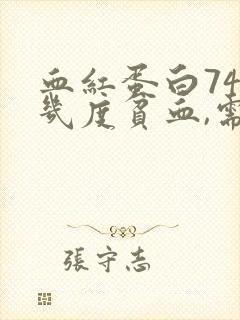 血紅蛋白74
幾度貧血,需
張守志